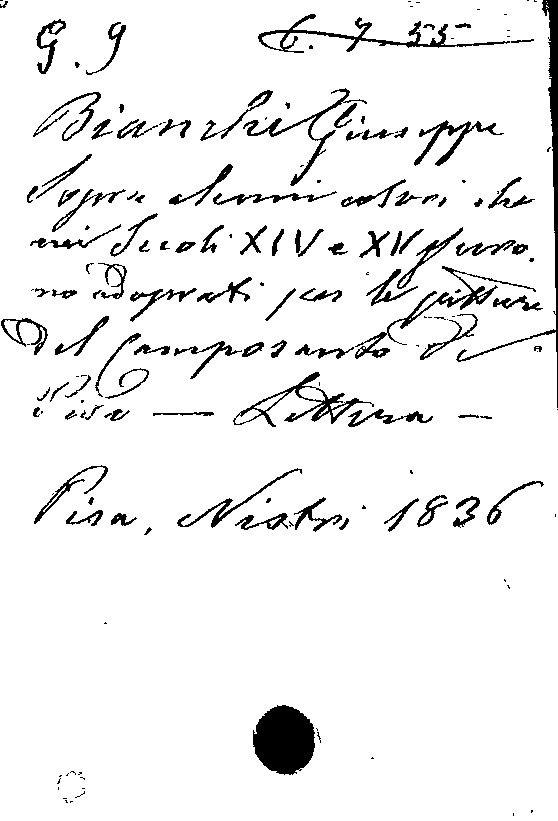 G. 9 6. 7. 55
Bianchi Giuseppe
Sopra alcuni colori che
nei Secoli XIV e XV furo.
no adoprati per le pitture
del Camposanto di
Pisa — Lettera —
Pisa, Nistri 1836